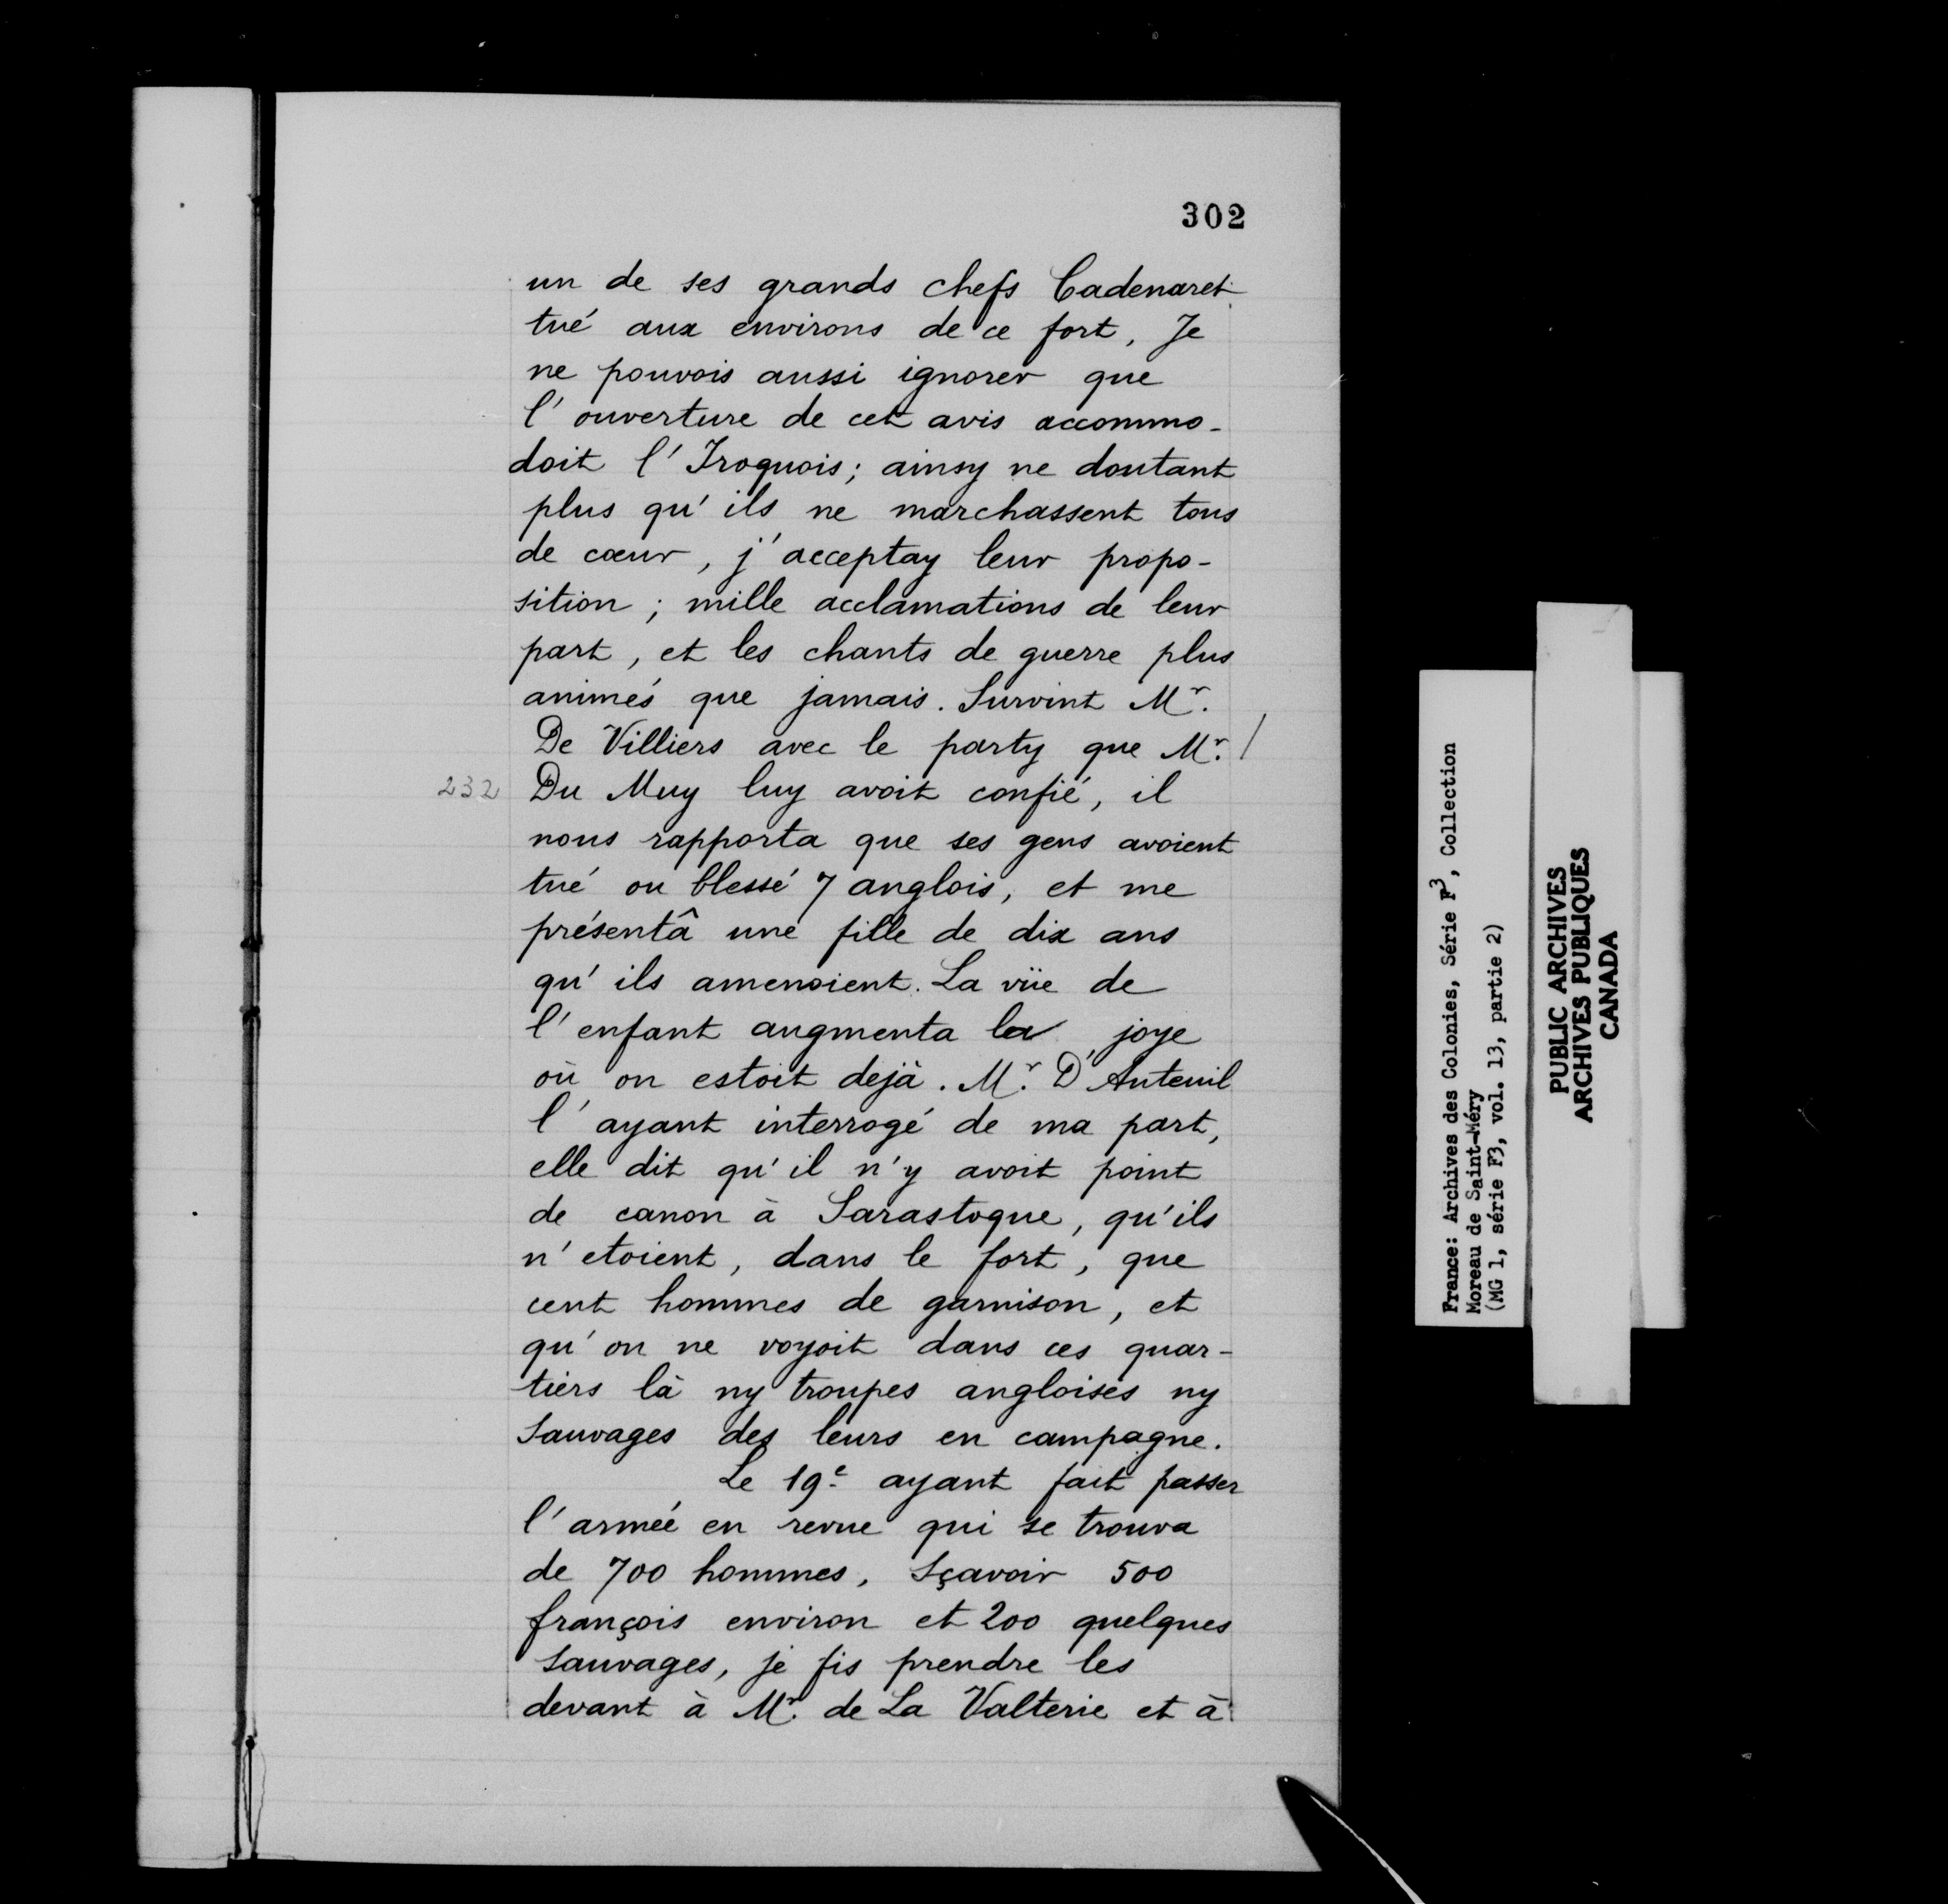 302
un de ses grands chefs Cadenaret
tué aux environs de ce fort, Je
ne pouvois aussi ignorer que
l'ouverture de cet avis accommo-
doit l'Iroquois; ainsy ne doutant
plus qu'ils ne marchassent tous
de cœur, j'acceptay leur propo-
sition; mille acclamations de leur
part, et les chants de guerre plus
animés que jamais. Survint Mr.
De Villiers avec le party que Mr. /
232 Du Muy luy avoit confié, il
nous rapporta que ses gens avoient
tué ou blessé 7 anglois, et me
présentâ une fille de dix ans
qu'ils amenoient. La vüe de
l'enfant augmenta la joye
où on estoit dejà. Mr. D'Auteuil
l'ayant interrogé de ma part,
elle dit qu'il n'y avoit point
de canon à Sarastogue, qu'ils
n'etoient, dans le fort, que
cent hommes de garnison, et
qu'on ne voyoit dans ces quar-
tiers là ny troupes angloises ny
Sauvages des leurs en campagne.
Le 19e ayant fait passer
l'armée en revue qui se trouva
de 700 hommes, Sçavoir 500
françois environ et 200 quelques
Sauvages, je fis prendre les
devant à Mr. de La Valterie et à
France: Archives des Colonies, Série F3, Collection
Moreau de Saint-Méry
(MG 1, série F3, vol. 13, partie 2)
PUBLIC ARCHIVES
ARCHIVES PUBLIQUES
CANADA